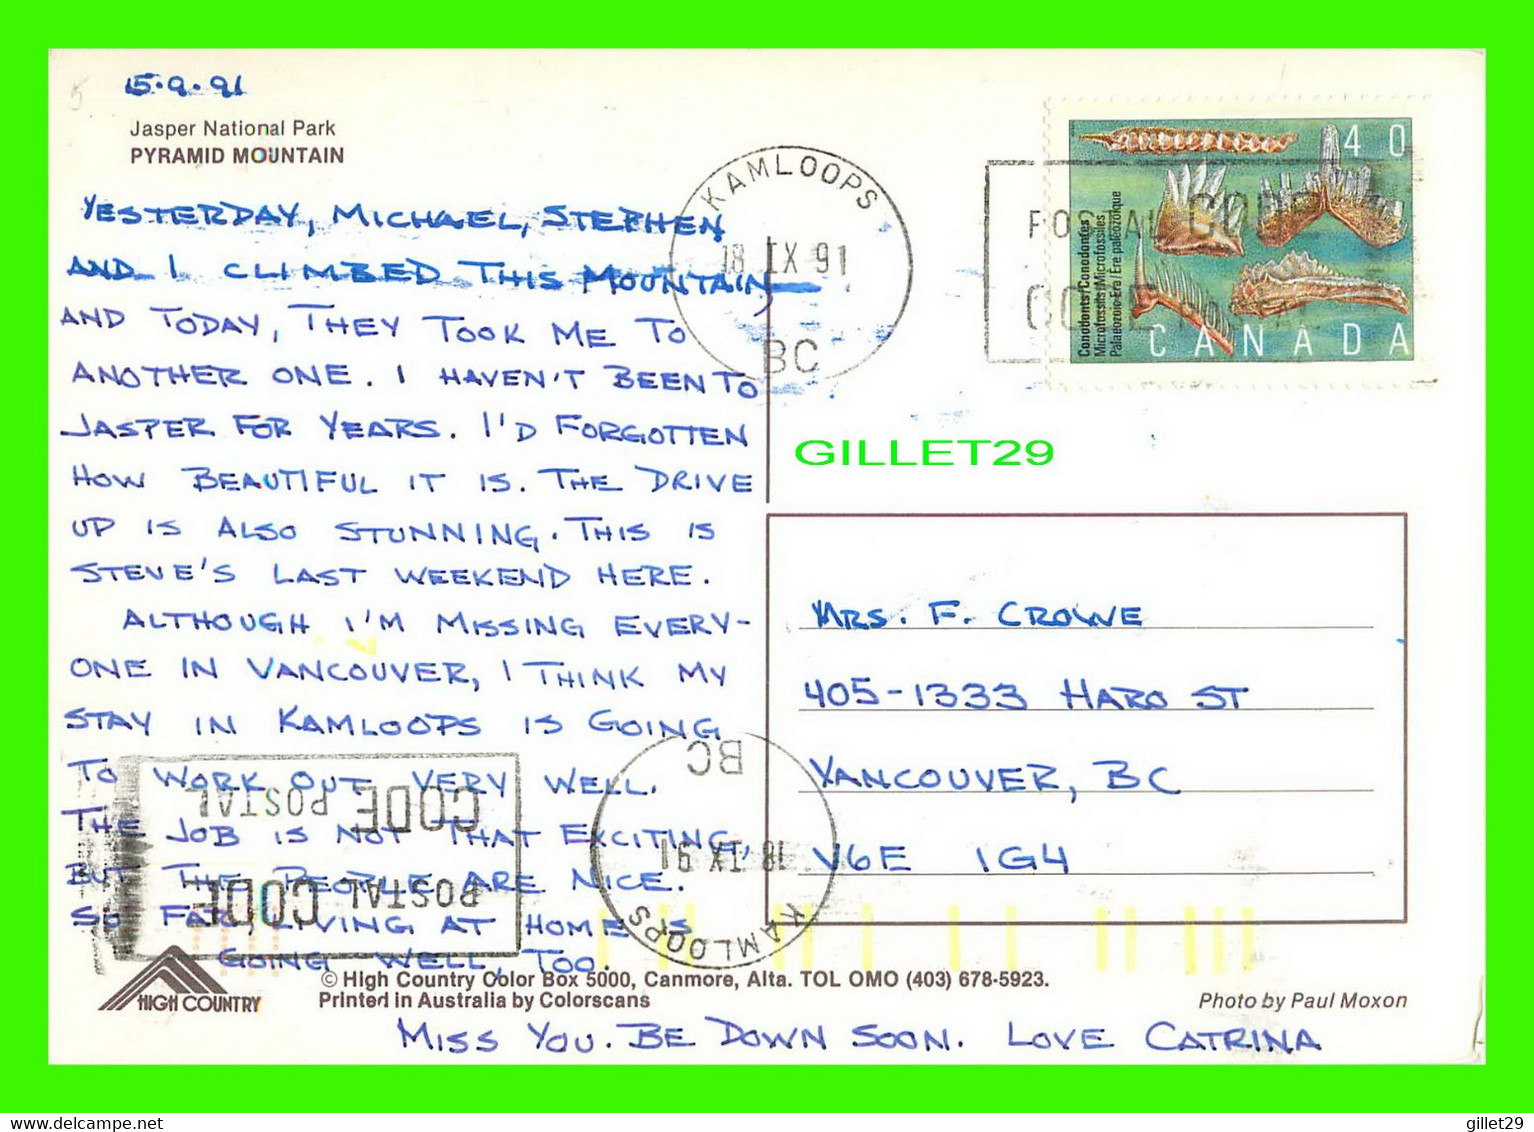 15.9.91
Jasper National Park
PYRAMID MOUNTAIN
YESTERDAY, MICHAEL, STEPHEN
AND I CLIMBED THIS MOUNTAIN,
AND TODAY, THEY TOOK ME TO
ANOTHER ONE. I HAVEN'T BEEN TO
JASPER FOR YEARS. I'D FORGOTTEN
HOW BEAUTIFUL IT IS. THE DRIVE
UP IS ALSO STUNNING. THIS IS
STEVE'S LAST WEEKEND HERE.
ALTHOUGH I'M MISSING EVERY-
ONE IN VANCOUVER, I THINK MY
STAY IN KAMLOOPS IS GOING
TO WORK OUT VERY WELL.
THE JOB IS NOT THAT EXCITING,
BUT THE PEOPLE ARE NICE.
SO FAR, LIVING AT HOME IS
GOING WELL, TOO.
MISS YOU. BE DOWN SOON. LOVE CATRINA
KAMLOOPS
18 IX 91
BC
POSTAL CODE
CODE POSTAL
40
Conodonts/Conodontes
Microfossils/Microfossiles
Palaeozoic Era/Ère paléozoïque
CANADA
GILLET29
MRS. F. CROWE
405-1333 HARO ST
VANCOUVER, BC
V6E 1G4
KAMLOOPS
18 IX 91
BC
CODE POSTAL
POSTAL CODE
HIGH COUNTRY
© High Country Color Box 5000, Canmore, Alta. TOL OMO (403) 678-5923.
Printed in Australia by Colorscans
Photo by Paul Moxon
delcampe.net
gillet29